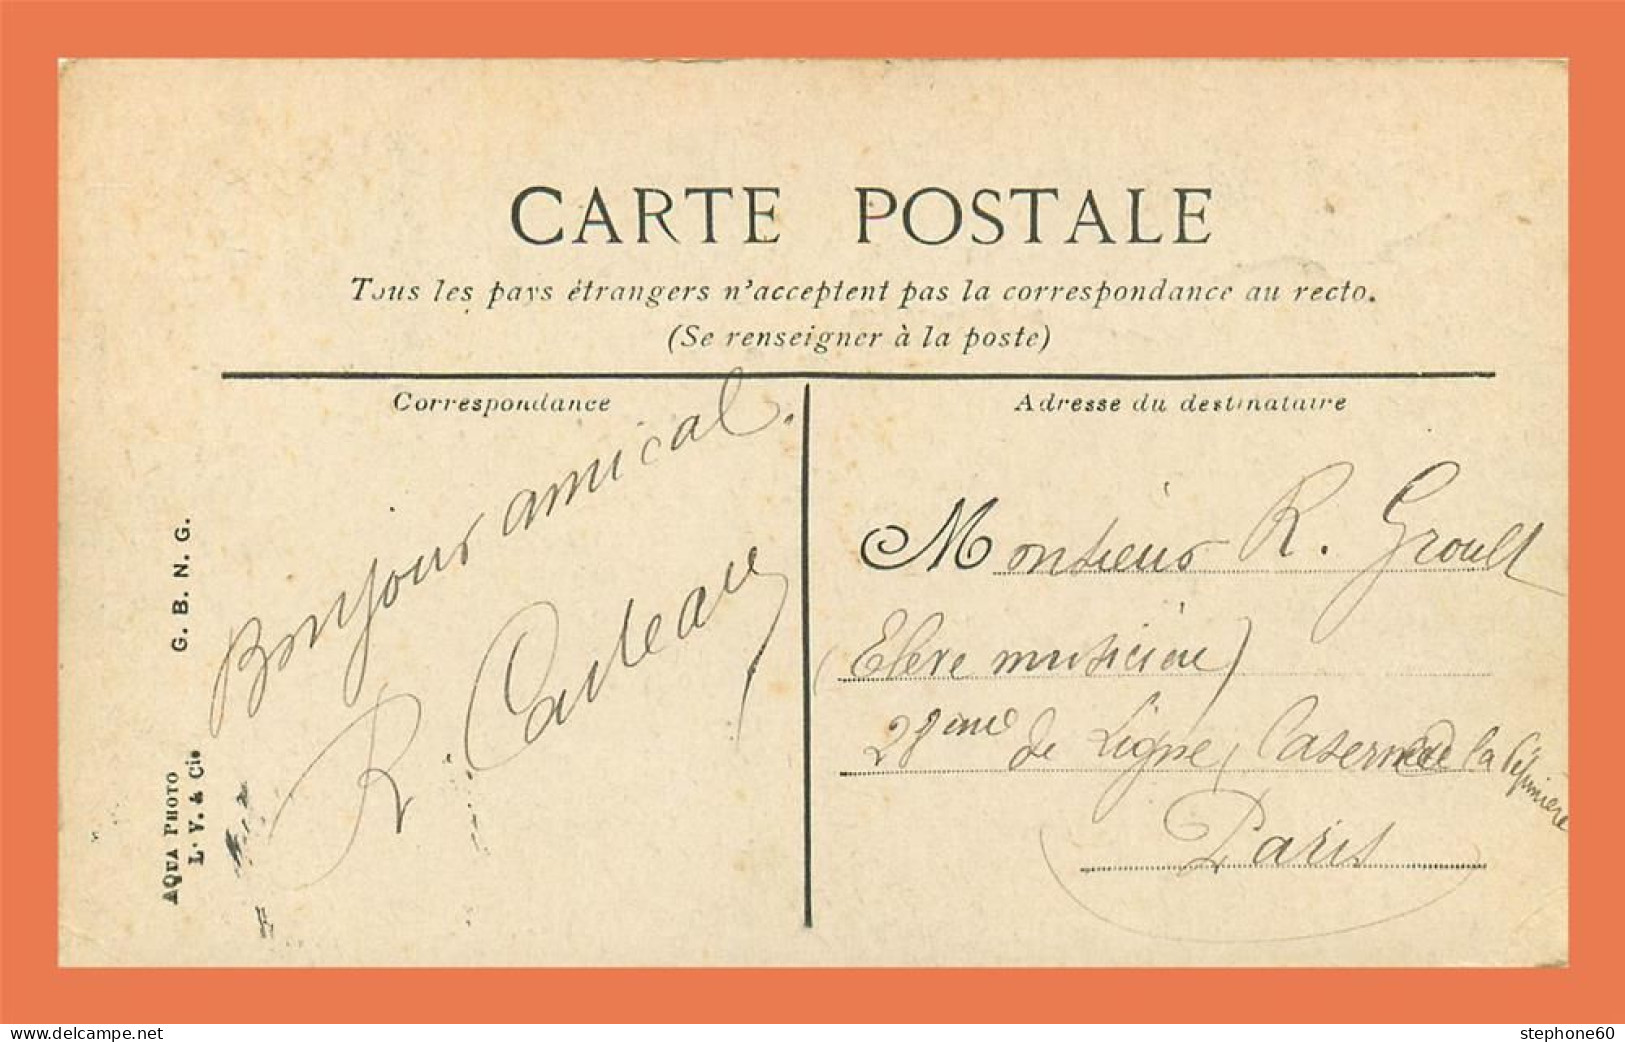 CARTE POSTALE
Tous les pays étrangers n'acceptent pas la correspondance au recto.
(Se renseigner à la poste)
Correspondance
Bonjour amical.
R. Casteau
Adresse du destinataire
Monsieur R. Groult
(Elève musicien)
28eme de Ligne, Caserne de la Pépinière
Paris
G. B. N. G.
AQUA PHOTO
L. V. & Cie
www.delcampe.net
stephone60